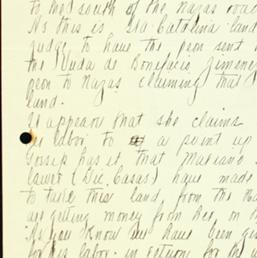 to the south of the Nazas road
As this is Sta Catalina land
judge to have the peon sent
the Viuda de Bonifacio Jimenez
peon to Nazas claiming that
land.
It appears that she claims
labor to a point up
Gossip has it, that Mariano
lawer (Lic. Casas) have made
to take this land from the Ha
are getting money from her, on
As you know we have been gi
for his labor in return for the